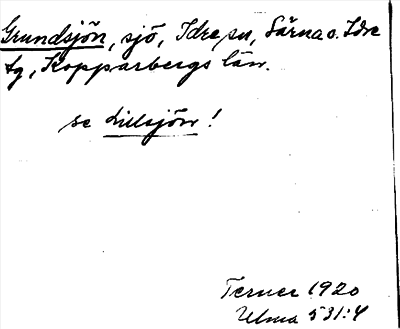 Grundsjön, sjö, Idre sn, Särna o. Idre
tg, Kopparbergs län.
se Lillsjön!
Terner 1920
Ulma 531:4